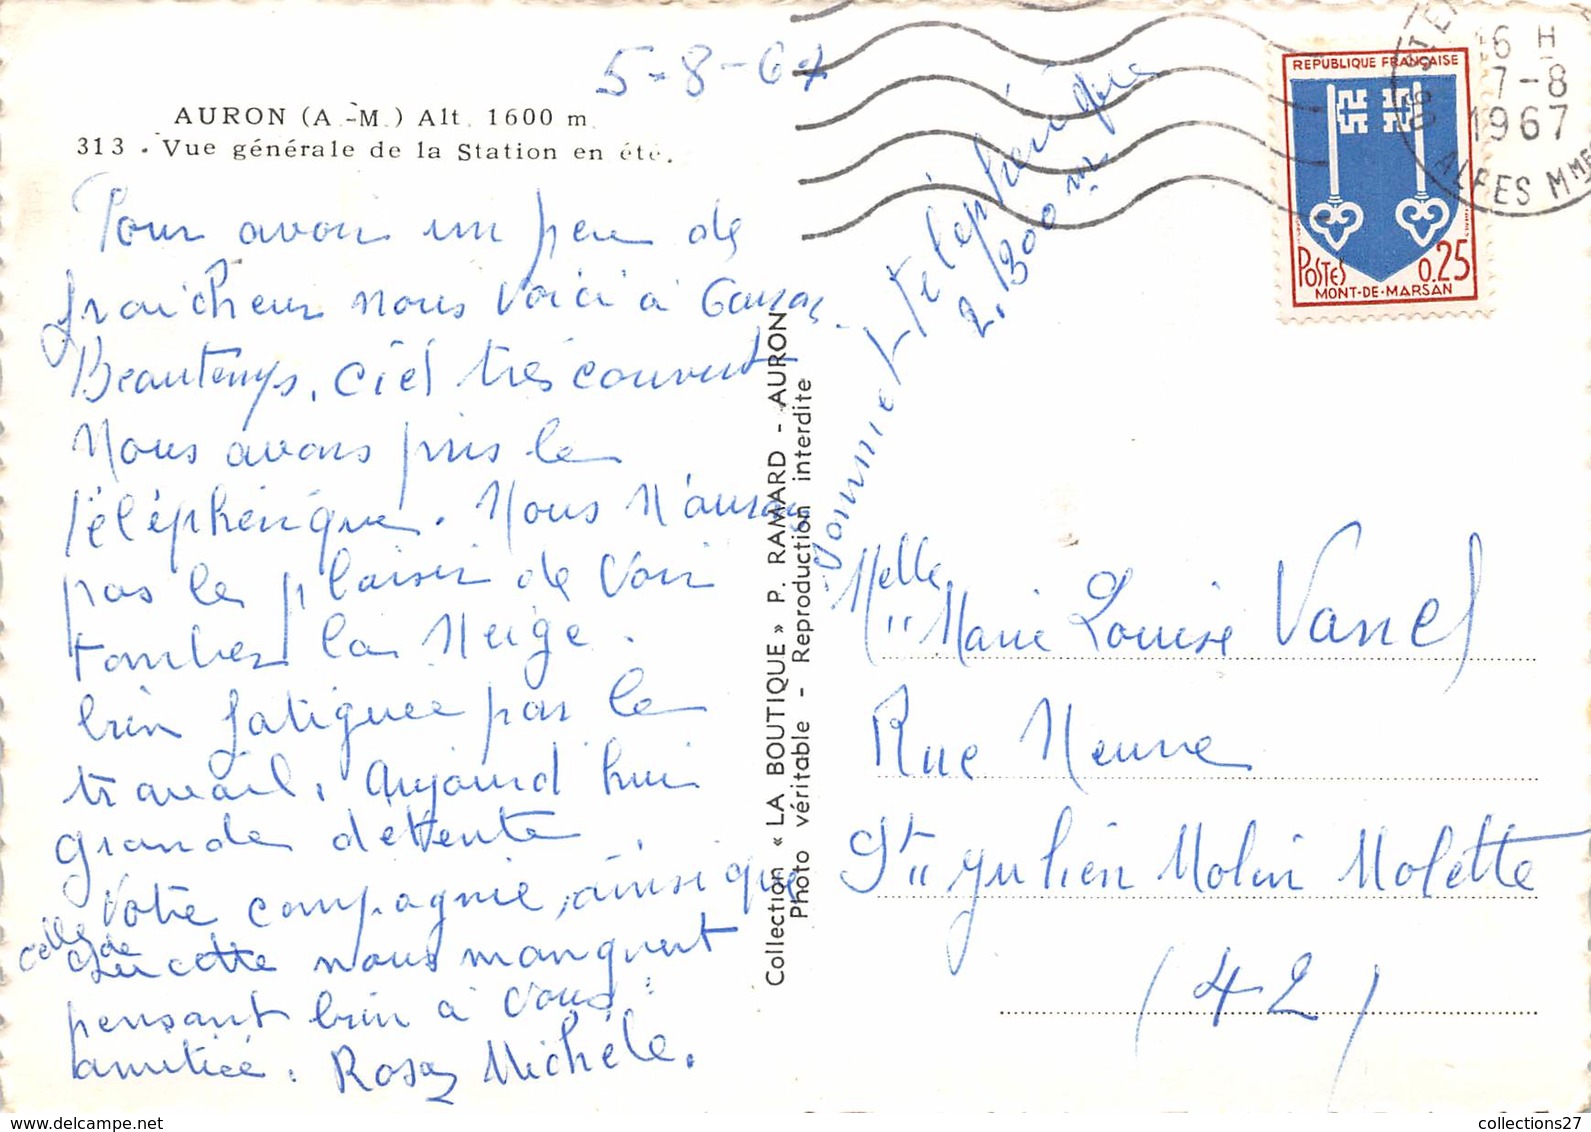 5-8-67
AURON (A.-M.) Alt. 1600 m.
313 - Vue générale de la Station en été.
Pour avoir un peu de
fraîcheur nous voici à
Beautemps, ciel très couvert
Nous avons pris le
téléphérique. Nous n'aurons
pas le plaisir de voir
tomber la neige.
bien fatiguée par le
travail, aujourd'hui
grande détente
Votre compagnie, ainsi que
celle de
Lucette nous manquent
pensant bien à vous
amitiée. Rosa Michèle.
Collection « LA BOUTIQUE » P. RAMARD - AURON
Photo véritable - Reproduction interdite
téléphérique
2.300 m
REPUBLIQUE FRANÇAISE
POSTES 0,25
MONT-DE-MARSAN
16 H
7-8
1967
ALPES MMES
Melle Marie Louise Vanel
Rue Neuve
St Julien Molin Molette
(42)
collections27